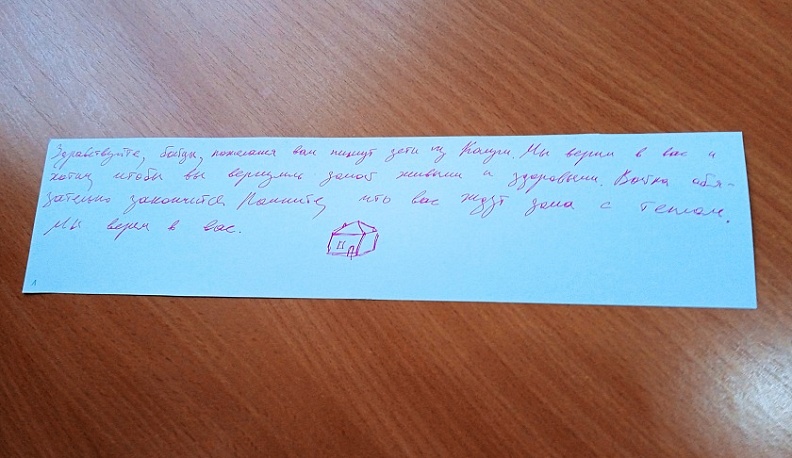 Здравствуйте, бойцы, пожелания вам пишут дети из Калуги. Мы верим в вас и
хотим, чтобы вы вернулись домой живыми и здоровыми. Война обя-
зательно закончится. Помните, что вас ждут дома с теплом.
Мы верим в вас.